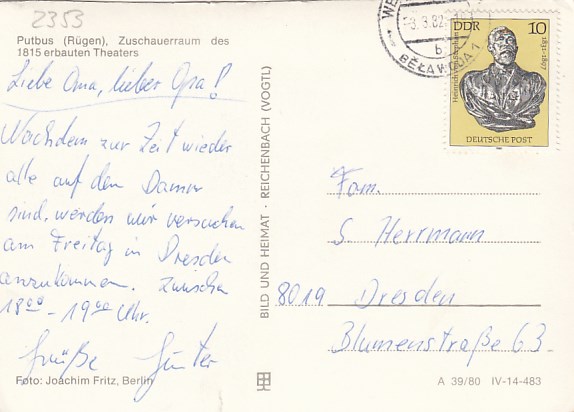 2353
Putbus (Rügen), Zuschauerraum des
1815 erbauten Theaters
Liebe Oma, lieber Opa!
Nachdem zur Zeit wieder
alle auf dem Damm
sind, werden wir versuchen
am Freitag in Dresden
anzukommen. Zwischen
18⁰⁰ - 19⁰⁰ Uhr.
Grüße Günter
Foto: Joachim Fritz, Berlin
BILD UND HEIMAT · REICHENBACH (VOGTL)
-3.3.82
b
BĚŁA WODA 1
DDR 10
Heinrich von Stephan
1831-1897
DEUTSCHE POST
Fam.
S. Herrmann
8019 Dresden
Blumenstraße 63
A 39/80 IV-14-483